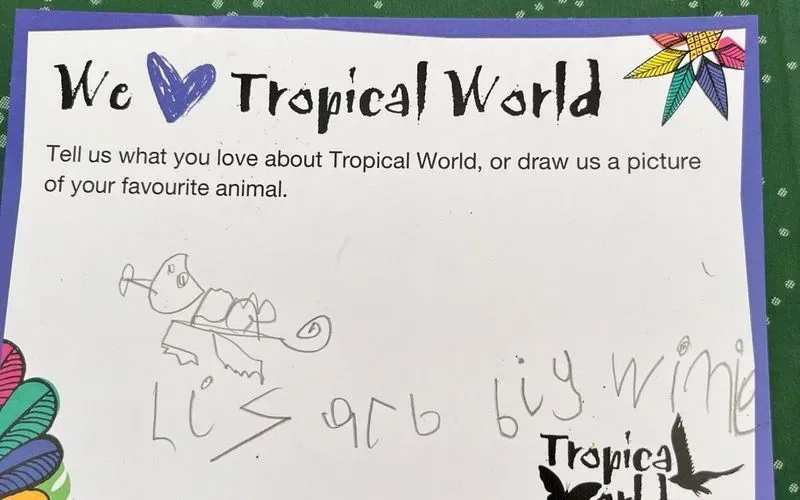 We Tropical World
Tell us what you love about Tropical World, or draw us a picture
of your favourite animal.
Lis big
Tropical